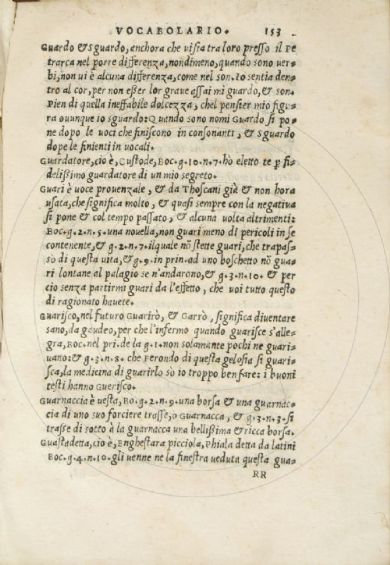 VOCABOLARIO. 153
Guardo & Sguardo, anchora che visia tra loro presso il Pe
trarca nel porre differenza, nondimeno, quando sono ver-
bi, non ui è alcuna differenza, come nel son. Io sentia den-
tro al cor, per non eßer lor graue assai mi guardo, & son.
Pien di quella ineffabile dolcezza, chel pensier mio figu-
ra ouunque io sguardo: Quando sono nomi Guardo si po
ne dopo le uoci che finiscono in consonanti, & Sguardo
dope le finienti in vocali.
Guardatore, cio è, Custode, Boc. g. 10. n. 7. hò eletto te p fi-
delißimo guardatore di un mio segreto.
Guari è uoce prouenzale, & da Thoscani già & non hora
usata, che significa molto, & quasi sempre con la negatiua
si pone & col tempo passato, & alcuna uolta altrimenti:
Boc. g. 2. n. 5. una nouella, non guari meno di pericoli in se
contenente, & g. 2. n. 7. ilquale nō stette guari, che trapas-
sò di questa uita, & g. 9. in prin. ad uno boschetto nō gua
ri lontane al palagio se n'andarono, & g. 3. n. 10. & per
cio senza partirmi guari da l'effetto, che uoi tutto questo
di ragionato hauete.
Guarisco, nel futuro Guarirò, & Garrò, significa diuentare
sano, da gaudeo, per che l'infermo quando guarisce s'alle-
gra, Boc. nel pri. de la g. 1. non solamente pochi ne guari-
uano: & g. 3. n. 8. che Ferondo di questa gelosia si guari-
sca, la medicina da guarirlo so io troppo ben fare: i buoni
testi hanno Guerisco.
Guarnaccia è uesta, Bo. g. 2. n. 9. una borsa & una guarnac-
cia di uno suo forciere trasse, o Guarnacca, & g. 3. n. 3. si
trasse di sotto à la guarnacca una bellißima & ricca borsa.
Guastadetta, cio è, Enghestara picciola, Phiala detta da latini
Boc. g. 4. n. 10. gli uenne ne la finestra ueduta questa gua-
RR